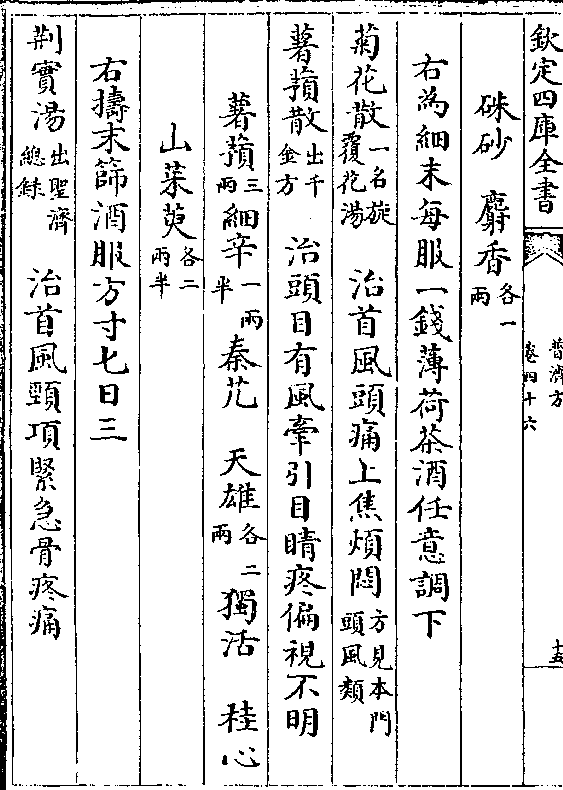 欽定四庫全書
普濟方
卷四十六
十五
硃砂 麝香各一兩
右為細末每服一錢薄荷茶酒任意調下
菊花散一名旋覆花湯 治首風頭痛上焦煩悶方見本門頭風類
薯蕷散出千金方 治頭目有風牽引目睛疼偏視不明
薯蕷三兩 細辛一兩半 秦艽 天雄各二兩 獨活 桂心
山茱萸各二兩半
右擣末篩酒服方寸匕日三
荆實湯出聖濟總録 治首風頸項緊急骨疼痛